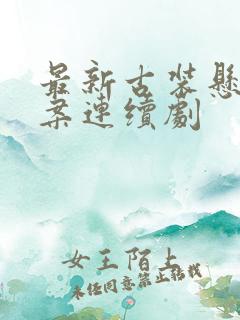 最新古装懸
案連續劇
女王陌上
未经同意禁止转载